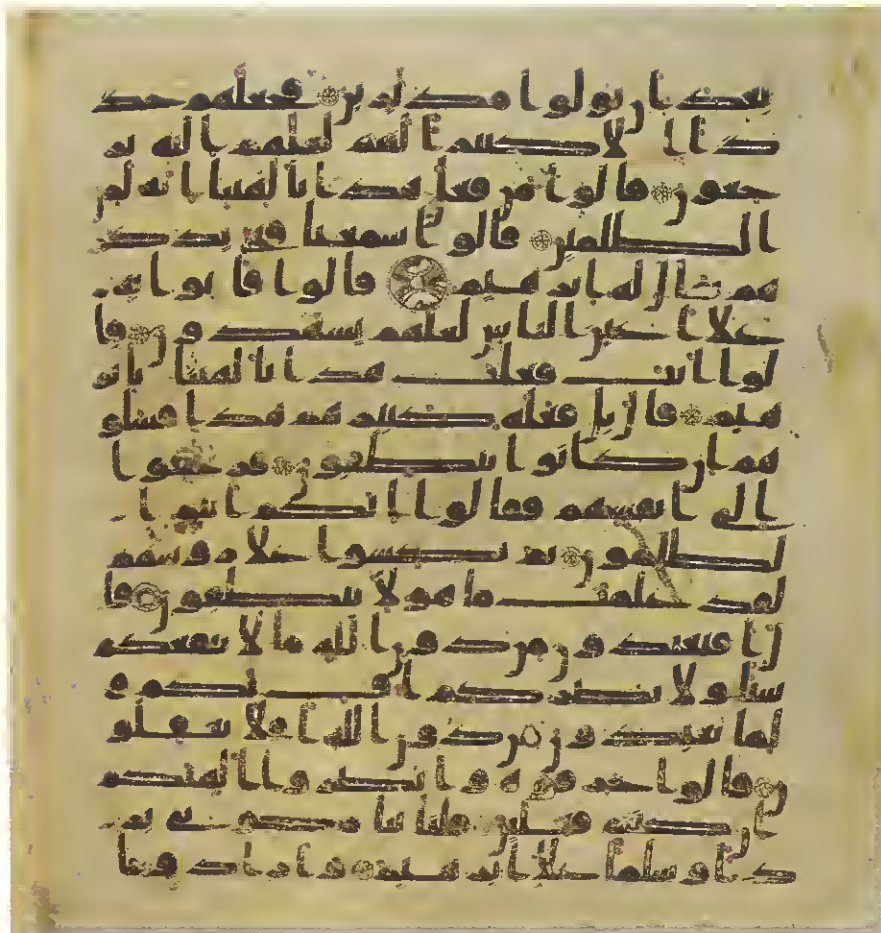 بعد ان تولوا مدبرين فجعلهم جذ
ذا الا كبيرا لهم لعلهم اليه ير
جعون قالوا من فعل هذا بالهتنا انه لمن
الظلمين قالوا سمعنا فتى يذكر
هم يقال له ابرهيم قالوا فاتوا به
علا اعين الناس لعلهم يشهدون قا
لوا انت فعلت هذا بالهتنا يابر
هيم قال بل فعله كبيرهم هذا فسلو
هم ان كانوا ينطقون فرجعوا
الى انفسهم فقالوا انكم انتم ا
لظلمون ثم نكسوا علا روسهم
لقد علمت ما هولا ينطقون قا
ل افتعبدون من دون الله ما لا ينفعكم
شيا ولا يضركم اف لكم و
لما تعبدون من دون الله افلا تعقلو
ن قالوا حرقوه وانصروا الهتكم
ان كنتم فعلين قلنا ينار كوني بر
دا وسلما علا ابرهيم وارادوا